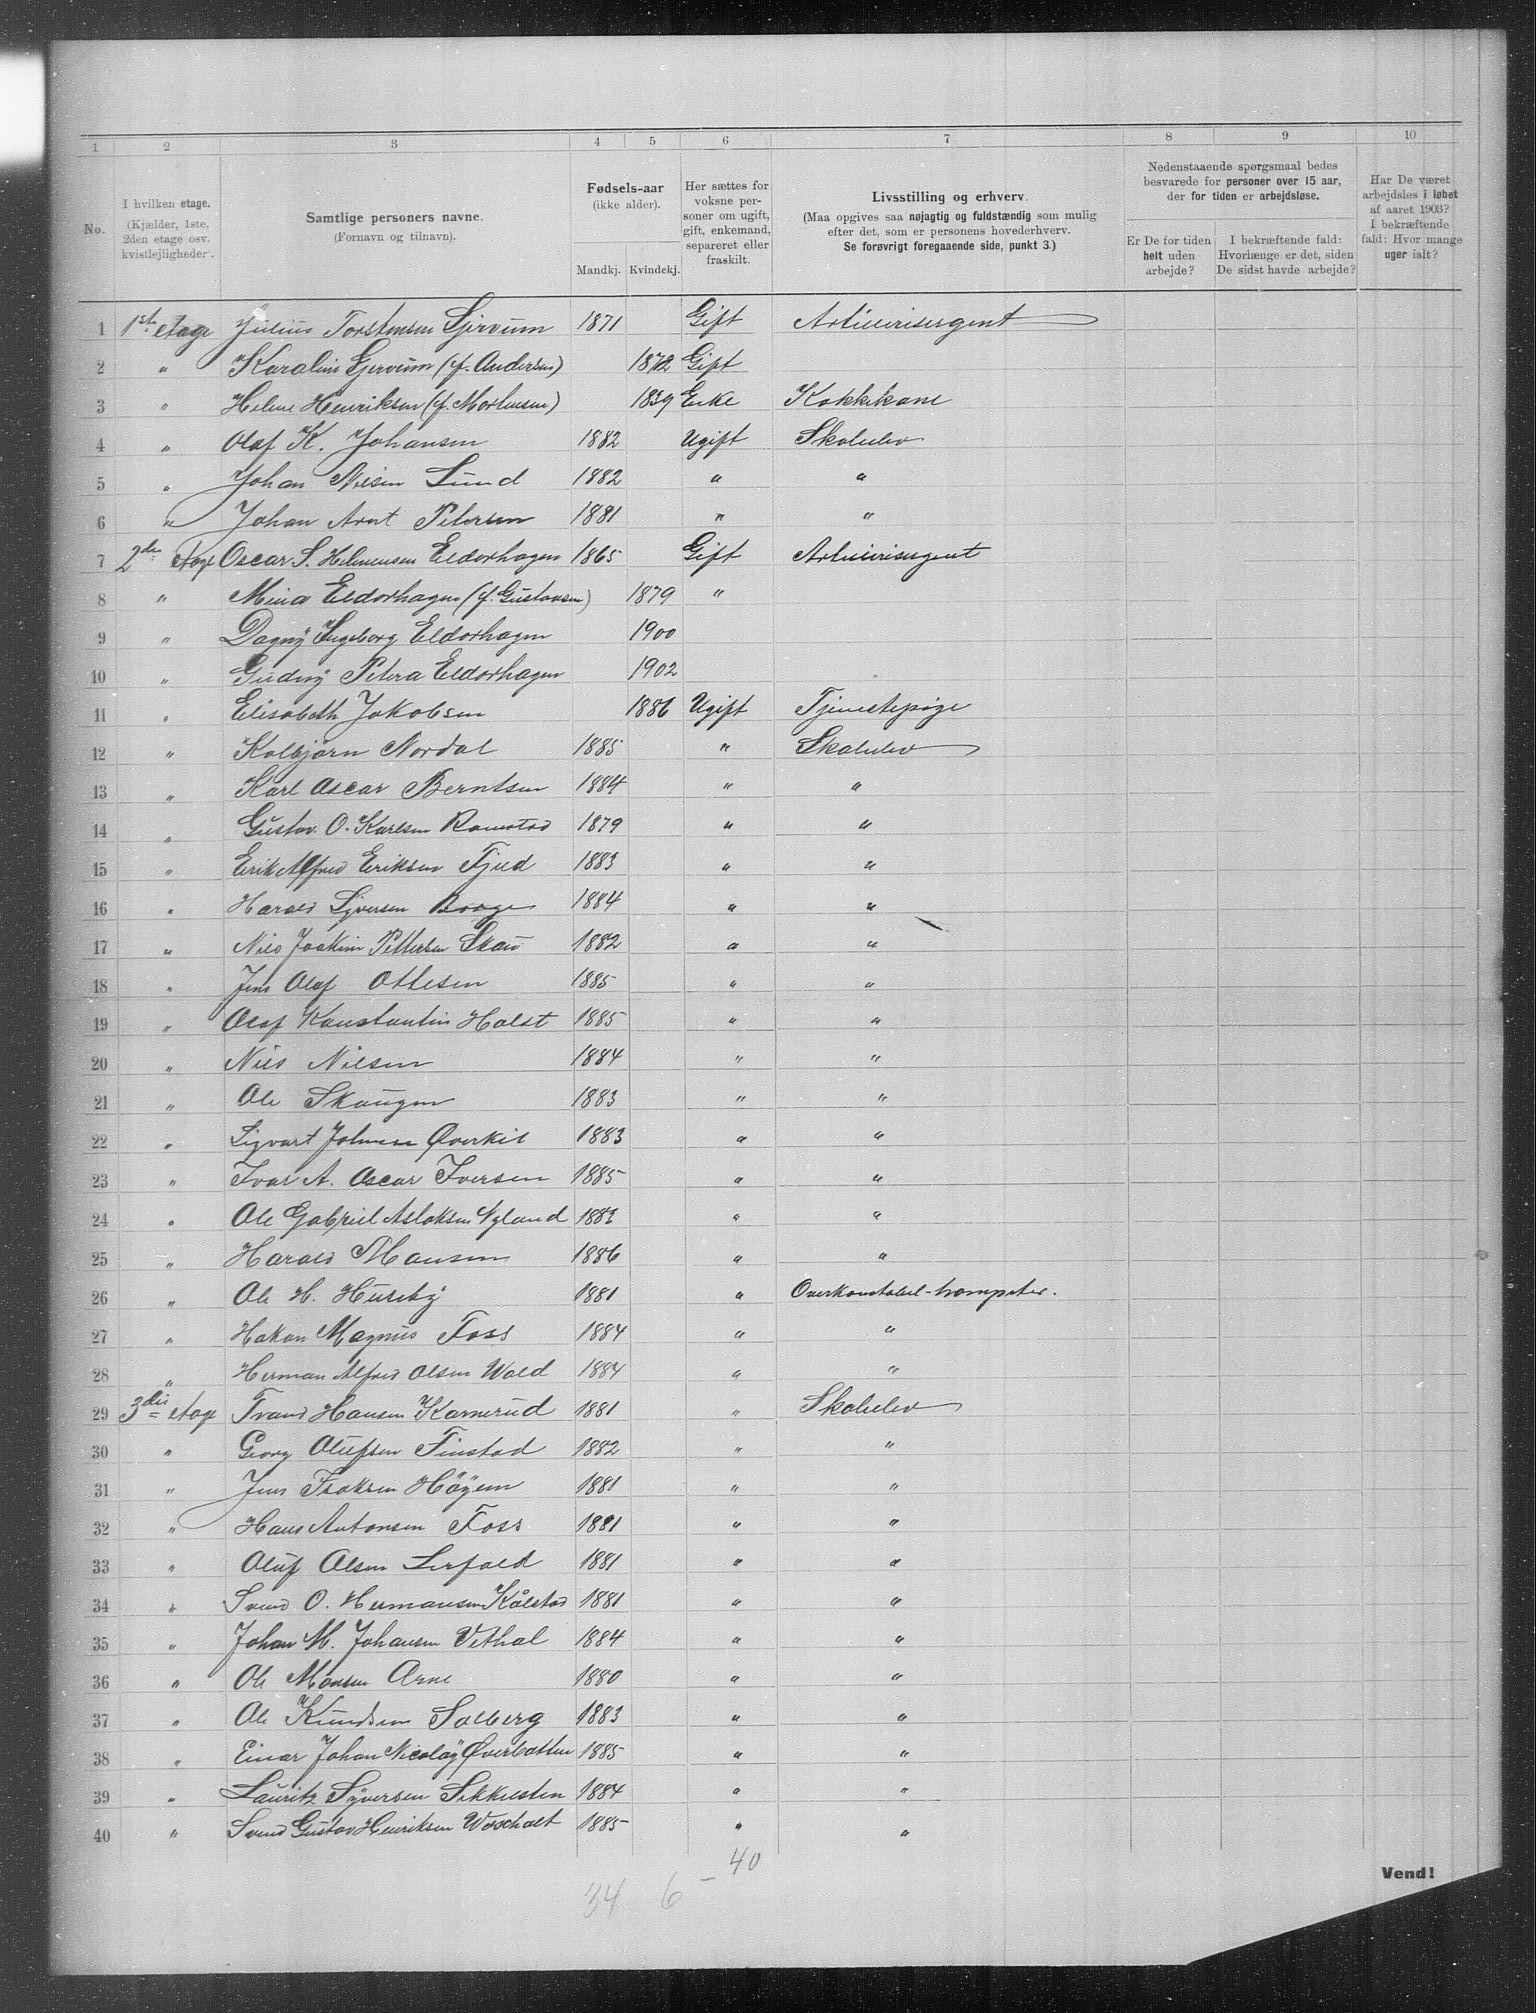 1 2 3 4 5 6 7 8 9 10
No.
I hvilken etage.
(Kjælder, 1ste,
2den etage osv.
kvistlejligheder.
Samtlige personers navne.
(Fornavn og tilnavn).
Fødsels-aar
(ikke alder).
Mandkj. Kvindekj.
Her sættes for
voksne per-
soner om ugift,
gift, enkemand,
separeret eller
fraskilt.
Livsstilling og erhverv.
(Maa opgives saa nøjagtig og fuldstændig som mulig
efter det, som er personens hovederhverv.
Se forøvrigt foregaaende side, punkt 3.)
Nedenstaaende spørgsmaal bedes
besvarede for personer over 15 aar,
der for tiden er arbejdsløse.
Er De for tiden
helt uden
arbejde?
I bekræftende fald:
Hvorlænge er det, siden
De sidst havde arbejde?
Har De været
arbejdsløs i løbet
af aaret 1903?
I bekræftende
fald: Hvor mange
uger ialt?
1 1ste etage Julius Torstensen Gjervum 1871 Gift Artillerisergent
2 " Karalini Gjervum (f. Andersen) 1872 Gift
3 " Helene Henriksen (f. Mortensen) 1839 Enke Kokkekone
4 " Olaf K. Johansen 1882 Ugift Skoleelev
5 " Johan Nilsen Lund 1882 " "
6 " Johan Arnt Petersen 1881 " "
7 2den etage Oscar S. Helmensen Eldorhagen 1865 Gift Artillerisergent
8 " Mina Eldorhagen (f. Gustavsen) 1879 "
9 " Dagny Ingeborg Eldorhagen 1900
10 " Gudny Petra Eldorhagen 1902
11 " Elisabeth Jakobsen 1886 Ugift Tjenestepige
12 " Kolbjørn Nordal 1885 " Skoleelev
13 " Karl Oscar Berntsen 1884 " "
14 " Gustav O. Karlsen Ramstad 1879 " "
15 " Erik Alfred Eriksen Fjeld 1883 " "
16 " Harald Syversen Borge 1884 " "
17 " Nils Joakim Pettersen Skau 1882 " "
18 " Jens Olaf Ottesen 1885 " "
19 " Olaf Konstantin Holst 1885 " "
20 " Nils Nilsen 1884 " "
21 " Ole Skaugen 1883 " "
22 " Sigvart Johnsen Øverkil 1883 " "
23 " Ivar A. Oscar Iversen 1885 " "
24 " Ole Gabriel Aslaksen Nyland 1883 " "
25 " Harald Monsen 1886 " "
26 " Ole H. Huseby 1881 " Overkonstabel-trompeter.
27 " Hakon Magnus Foss 1884 " "
28 " Herman Alfred Olsen Wold 1884 " "
29 3die etage Trand Hansen Karnerud 1881 " Skoleelev
30 " Georg Olufsen Finstad 1882 " "
31 " Jens Isaksen Høyem 1881 " "
32 " Hans Antonsen Foss 1881 " "
33 " Oluf Olsen Lerfald 1881 " "
34 " Svend O. Hermansen Kålstad 1881 " "
35 " Johan M. Johansen Vethal 1884 " "
36 " Ole Monsen Arne 1880 " "
37 " Ole Knudsen Solberg 1883 " "
38 " Einar Johan Nicolay Øverbotten 1885 " "
39 " Lauritz Syversen Sikkelsten 1884 " "
40 " Svend Gustav Henriksen 1885 " "
40
34 6
Vend!